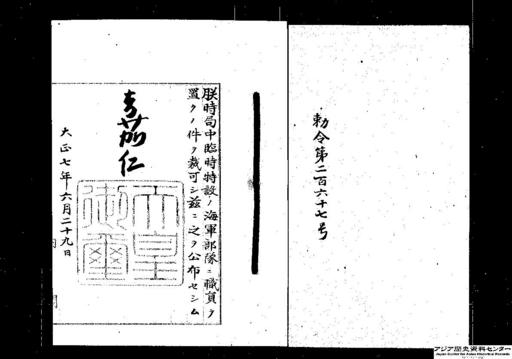 勅令第二百六十七号
朕時局中臨時特設ノ海軍部隊ニ職員ヲ
置クノ件ヲ裁可シ茲ニ之ヲ公布セシム
嘉仁
天皇
御璽
大正七年六月二十九日
アジア歴史資料センター
Japan Center for Asian Historical Records